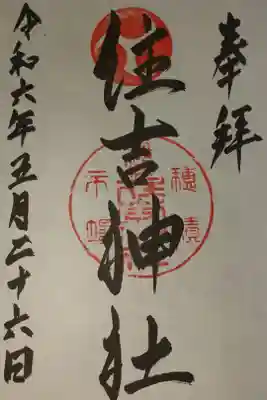 奉拝
住吉神社
令和六年五月二十六日